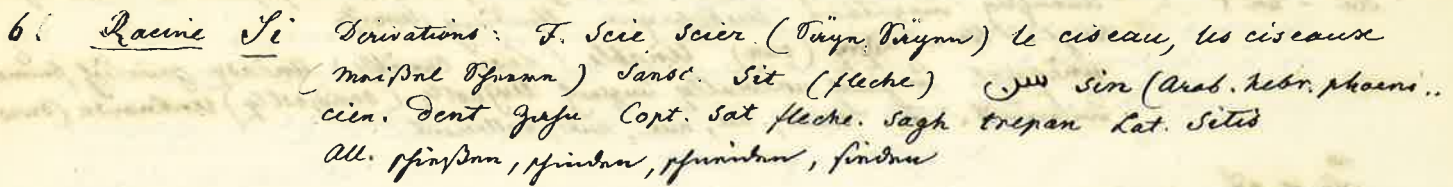 6. Racine Si Derivations: F. Scie Scier (Säge, Sägen) le ciseau, les ciseaux
(Meißel Scheere) Sansc. Sit (fleche) سن sin (Arab. hebr. phoeni..
cien. Dent Zahn Copt. Sat fleche. Sagh trepan Lat. Sitis
All. schießen, schinden, schneiden, sinden